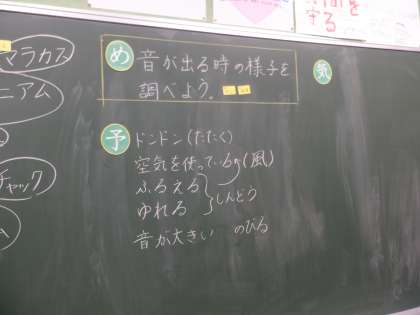 を守る
マラカス
ニアム
チャック
ム
め
音が出る時の様子を
調べよう。
気
予
ドンドン(たたく)
空気を使っているり(風)
ふるえる
ゆれる
しんどう
音が大きい のびる